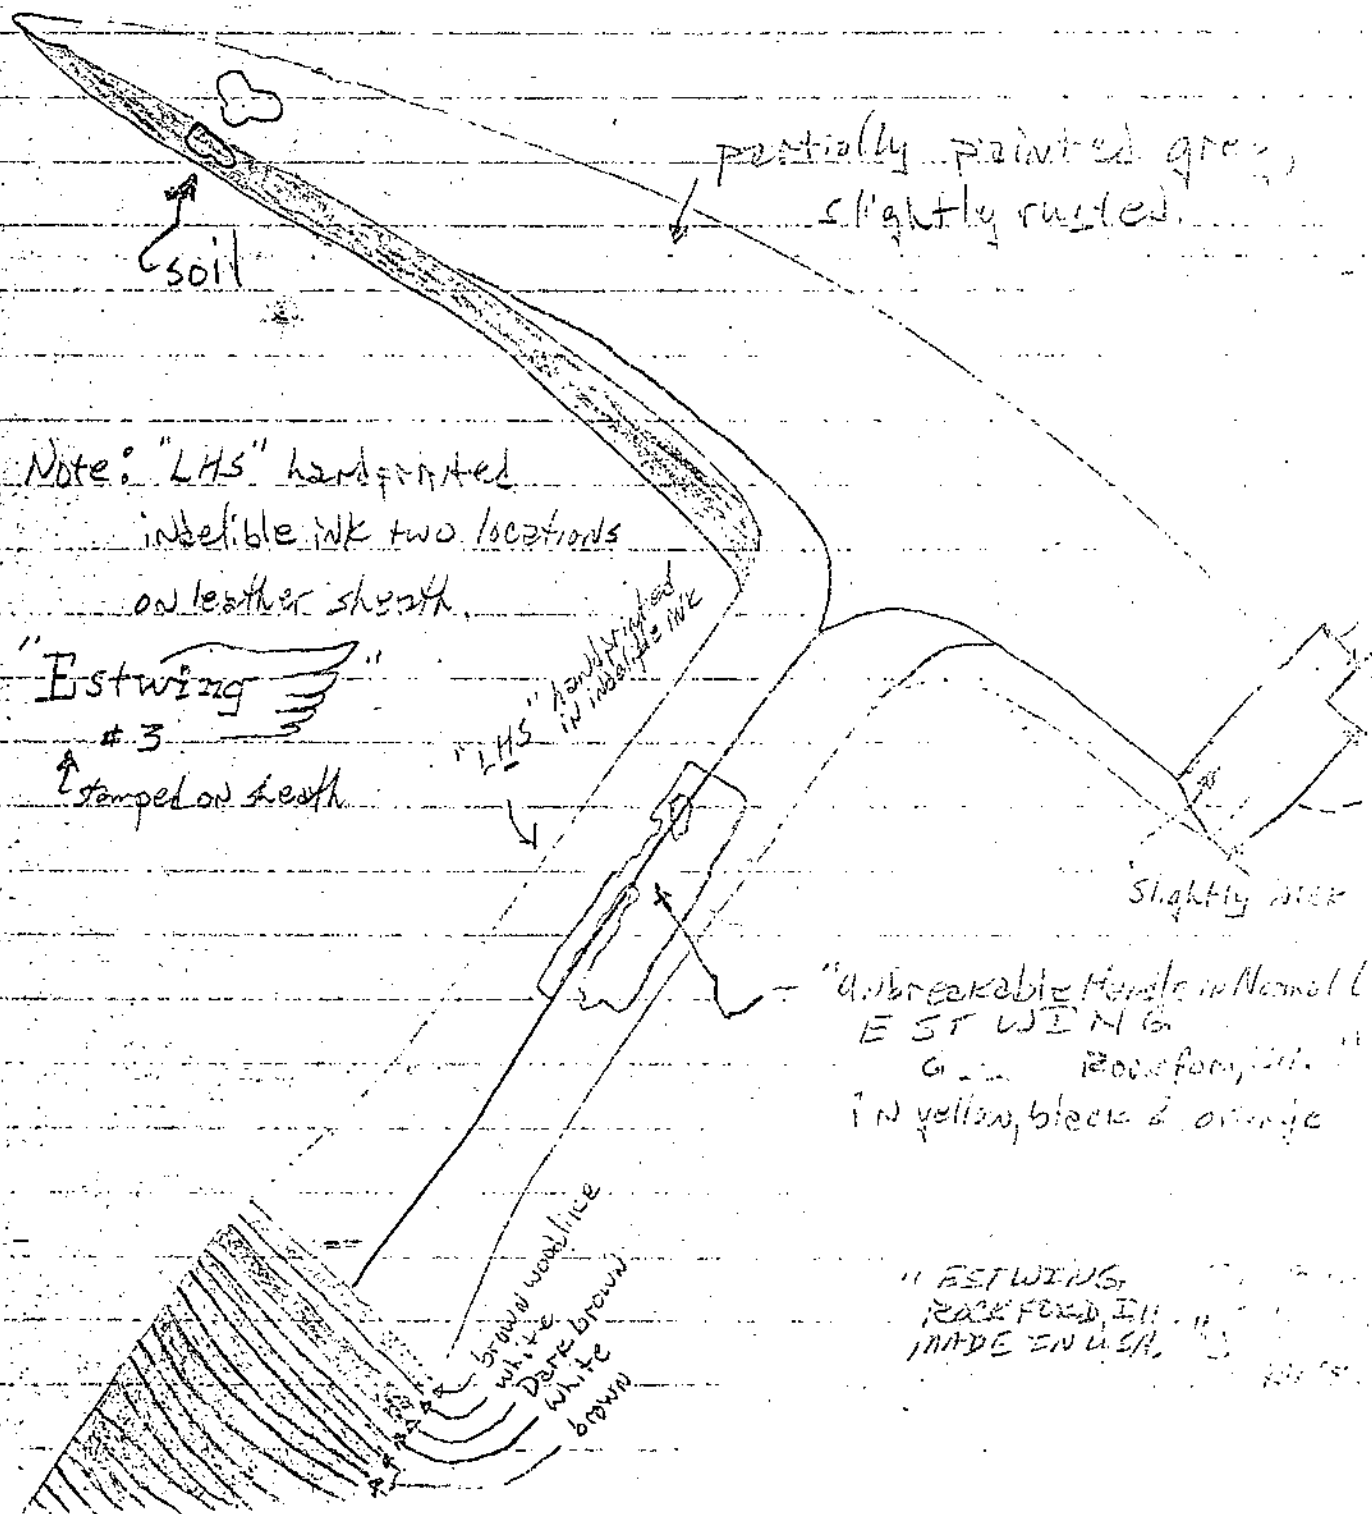 partially painted grey,
slightly rusted.
soil
Note: "LHS" handprinted
indelible ink two locations
on leather sheath.
"Estwing"
#3
stamped on sheath
"LHS" handprinted
in indelible ink
slightly
"Unbreakable Handle in Normal
ESTWING
G... Rockford, Ill. "
in yellow, black & orange
brown woodlike
white
Dark brown
white
brown
"ESTWING
ROCKFORD, Ill.
MADE IN USA. "